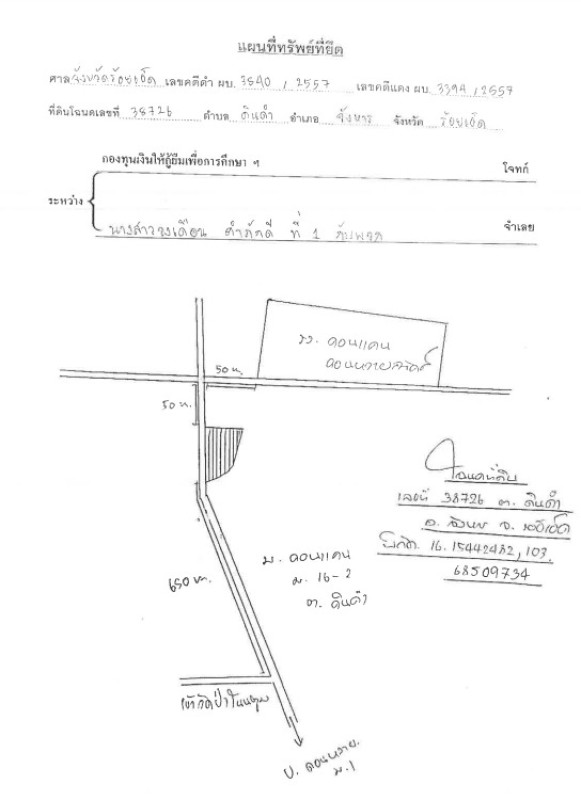 แผนที่ทรัพย์ที่ยึด
ศาล จังหวัดร้อยเอ็ด เลขคดีดำ ผบ. 3540 / 2557 เลขคดีแดง ผบ. 3394 / 2557
ที่ดินโฉนดเลขที่ 38726 ตำบล ดินดำ อำเภอ จังหาร จังหวัด ร้อยเอ็ด
กองทุนเงินให้กู้ยืมเพื่อการศึกษา ฯ โจทก์
ระหว่าง
นางสาวดวงเดือน คำภักดี ที่ 1 กับพวก จำเลย
รร. ดอนแคน
ดอนหวายสวรรค์
50 ม.
50 ม.
โฉนดที่ดิน
เลขที่ 38726 ต. ดินดำ
อ. จังหาร จ. ร้อยเอ็ด
พิกัด 16.15442482, 103.
68509734
บ. ดอนแคน
ม. 16-2
ต. ดินดำ
650 ม.
บ. ดอนหวาย
ม.1